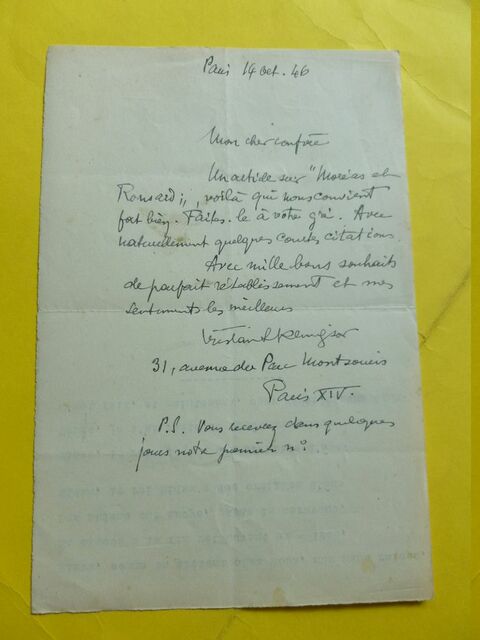 Paris 14 Oct. 46
Mon cher confrère
Un article sur "Moréas et
Ronsard", voilà qui nous convient
fort bien. Faites-le à votre gré. Avec
naturellement quelques courtes citations.
Avec mille bons souhaits
de parfait rétablissement et mes
sentiments les meilleurs
Tristan Klingsor
31, avenue du Parc Montsouris
Paris XIV.
P.S. Vous recevrez dans quelques
jours notre premier n°.